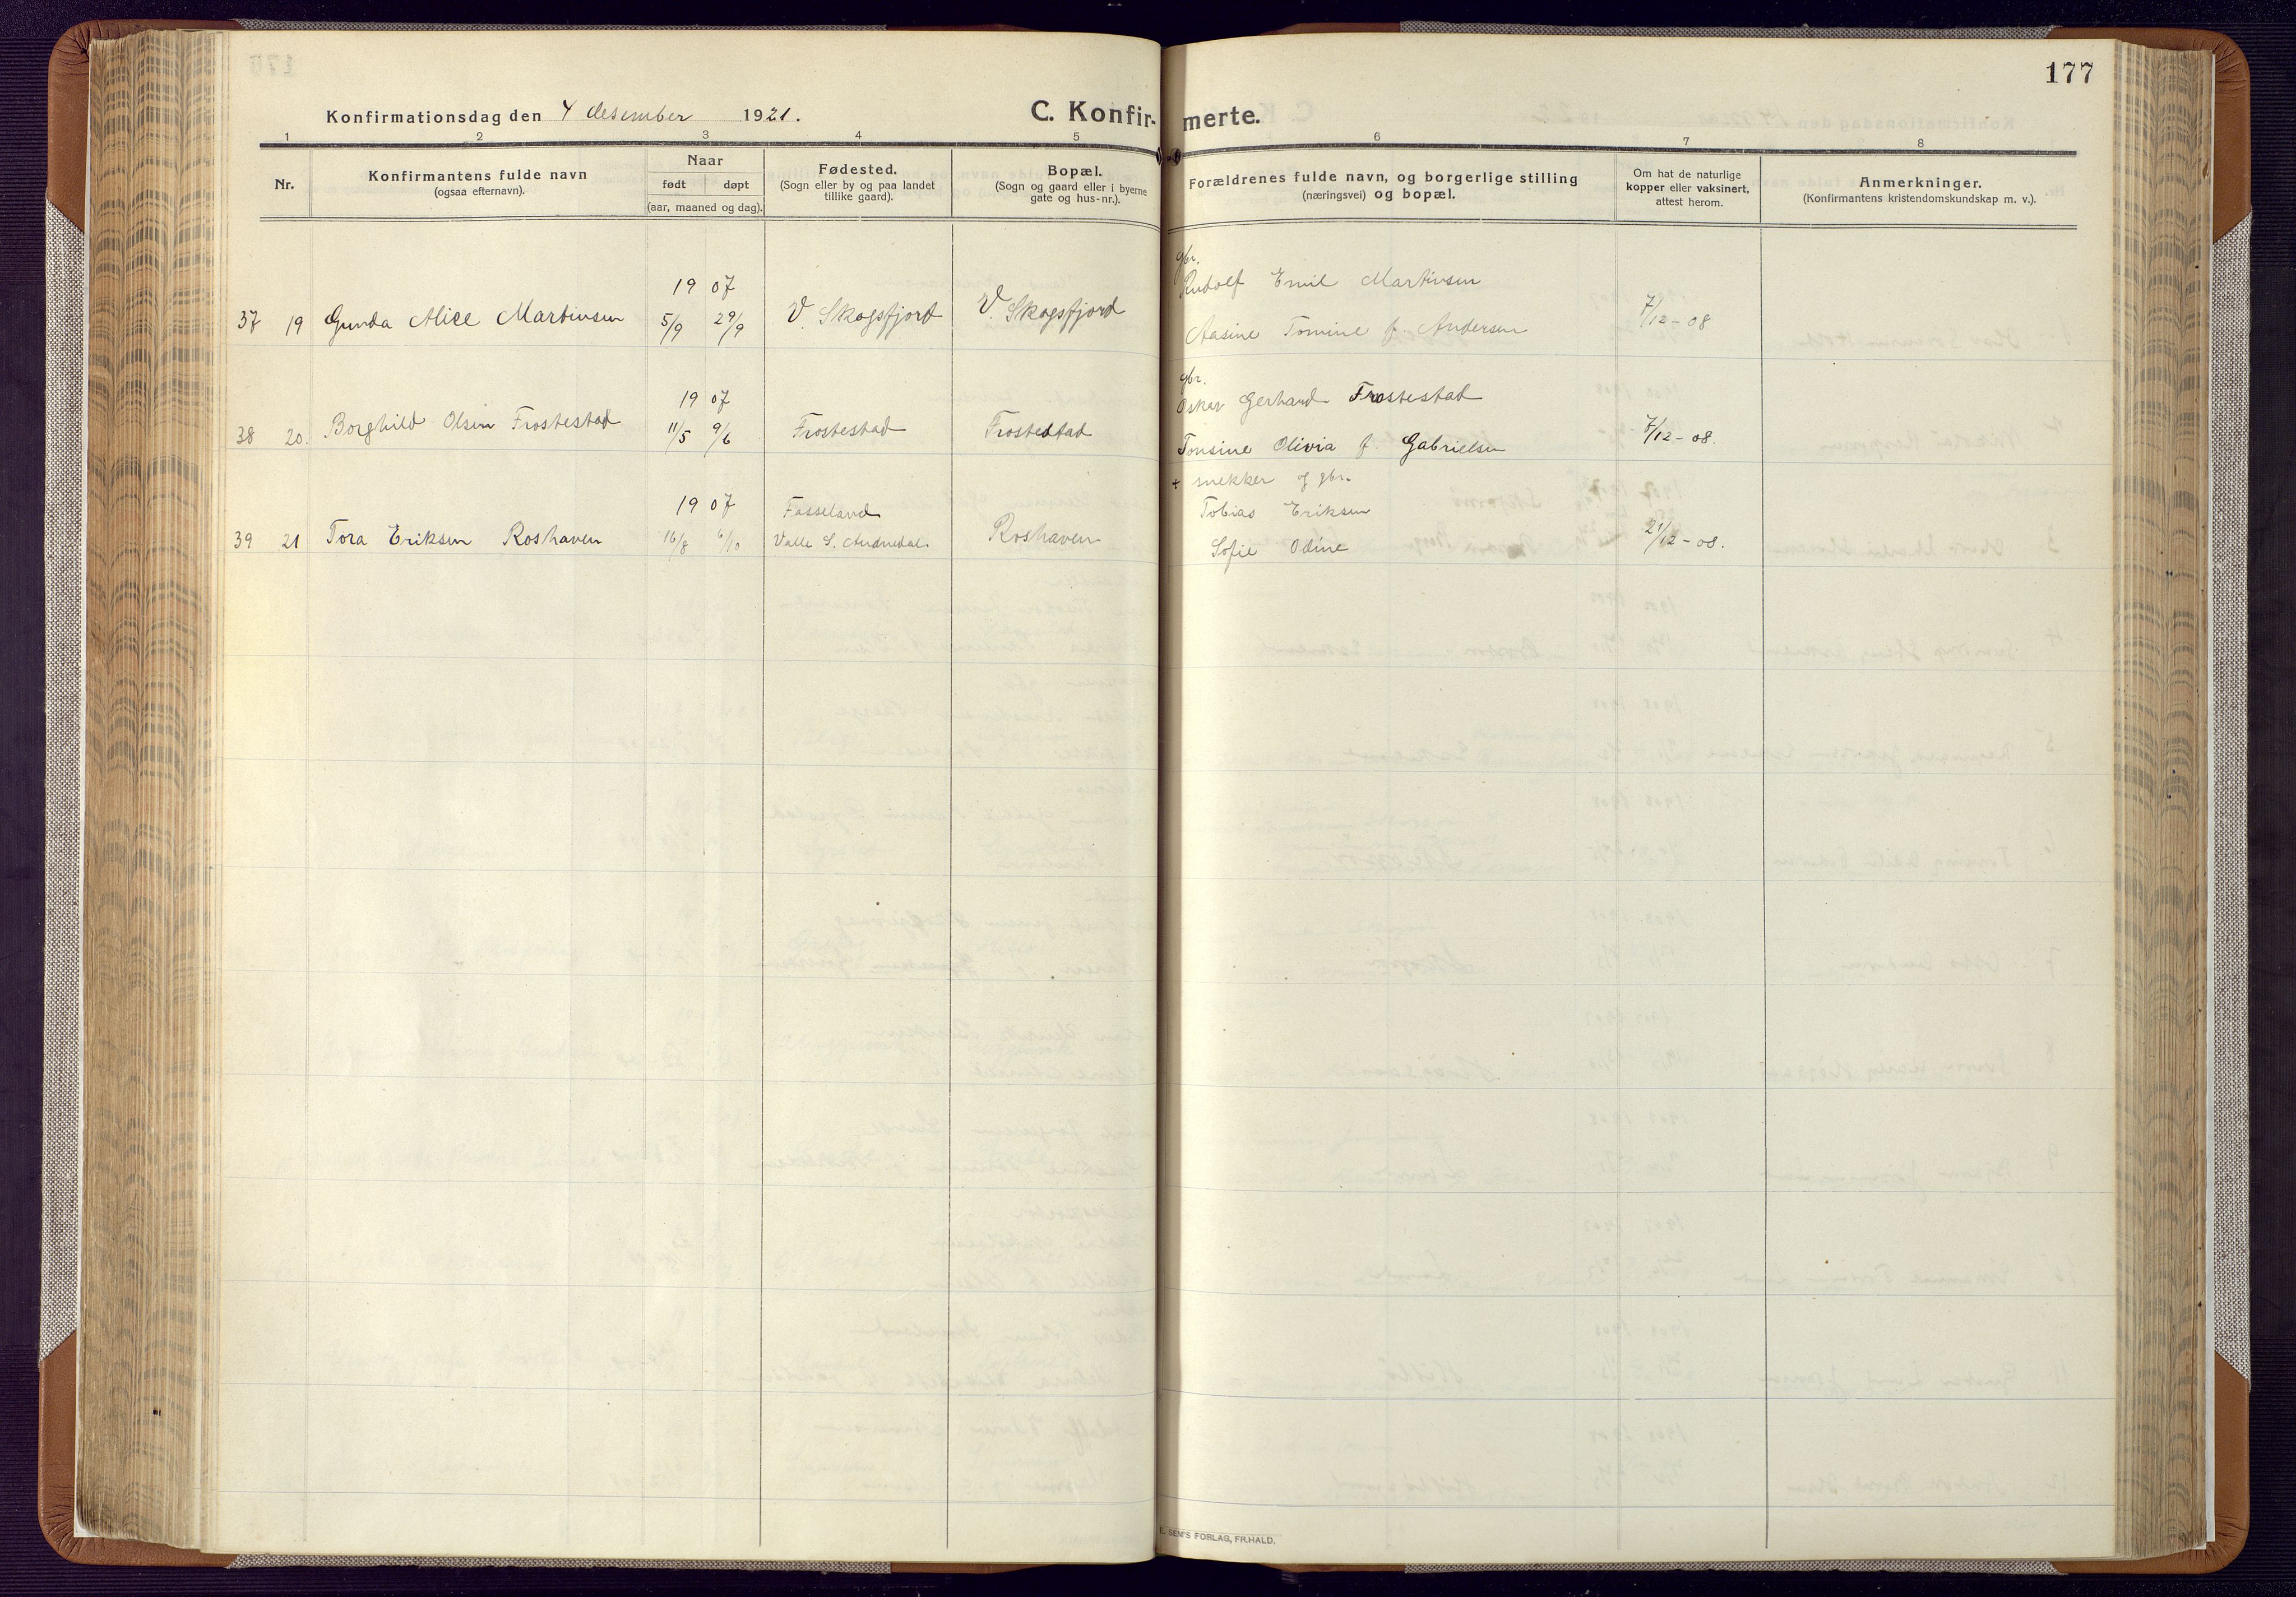 177
Konfirmationsdag den 4 desember 1921.
C. Konfir-
merte.
1 2 3 4 5 6 7 8
Nr.
Konfirmantens fulde navn
(ogsaa efternavn).
Naar
født døpt
(aar, maaned og dag).
Fødested.
(Sogn eller by og paa landet
tillike gaard).
Bopæl.
(Sogn og gaard eller i byerne
gate og hus-nr.).
Forældrenes fulde navn, og borgerlige stilling
(næringsvei) og bopæl.
Om hat de naturlige
kopper eller vaksinert,
attest herom.
Anmerkninger.
(Konfirmantens kristendomskundskap m. v.).
gbr.
19 07 Rudolf Emil Martinsen
37 19 Gunda Alice Martinsen 5/9 29/9 V. Skogsfjord V. Skogsfjord 7/12-08
Aasine Tomine f. Andersen
gbr.
19 07 Oskar Gerhard Frostestad
38 20. Borghild Olsen Frostestad 11/5 9/6 Frostestad Frostestad 7/12-08.
Tonsine Olivia f. Gabrielsen
+ snekker og gbr.
19 07 Fasseland Tobias Eriksen
39 21 Tora Eriksen Roshaven 16/8 6/10 Valle S. Audnedal. Roshaven 21/12-08.
Sofie Odine
E. SEM'S FORLAG, FR.HALD.